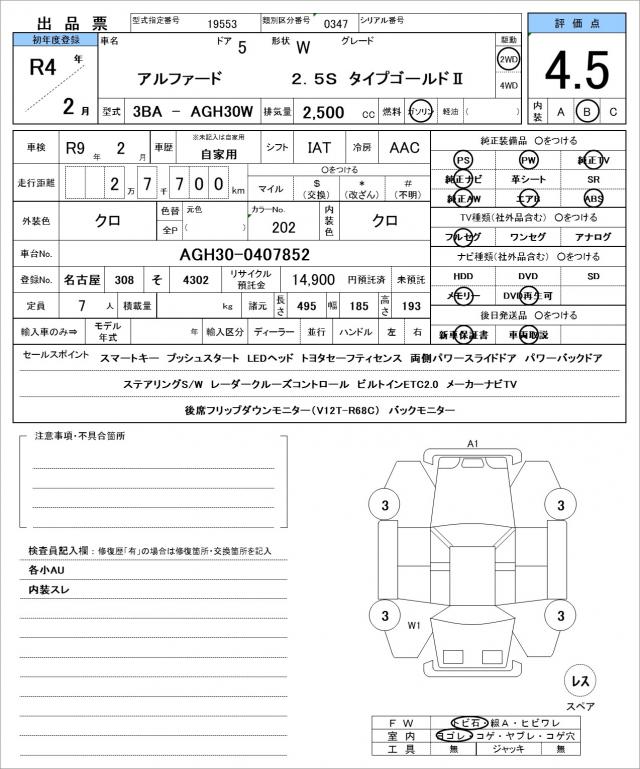 出品票 型式指定番号 19553 類別区分番号 0347 シリアル番号
評価点
4.5
内装 A B C
初年度登録
R4 年
2 月
車名 ドア 5 形状 W グレード
アルファード 2.5S タイプゴールドⅡ
駆動
2WD
4WD
型式 3BA － AGH30W 排気量 2,500 cc 燃料 ガソリン 軽油 ( )
車検 R9 年 2 月 車歴 ※未記入は自家用 自家用 シフト IAT 冷房 AAC
走行距離 2 万 7 千 7 0 0 km
〇をつける
マイル $ (交換) * (改ざん) # (不明)
外装色 クロ 色替 元色 全P ( ) カラーNo. 202 内装色 クロ
車台No. AGH30-0407852
登録No. 名古屋 308 そ 4302 リサイクル預託金 14,900 円預託済 未預託
定員 7 人 積載量 kg 諸元 長さ 495 幅 185 高さ 193
輸入車のみ⇒ モデル年式 年 輸入区分 ディーラー 並行 ハンドル 左 右
純正装備品 〇をつける
PS PW 純正TV
純正ナビ 革シート SR
純正AW エアB ABS
TV種類(社外品含む) 〇をつける
フルセグ ワンセグ アナログ
ナビ種類(社外品含む) 〇をつける
HDD DVD SD
メモリー DVD再生可
後日発送品 〇をつける
新車保証書 車両取説
セールスポイント スマートキー プッシュスタート LEDヘッド トヨタセーフティセンス 両側パワースライドドア パワーバックドア
ステアリングS/W レーダークルーズコントロール ビルトインETC2.0 メーカーナビTV
後席フリップダウンモニター(V12T-R68C) バックモニター
注意事項・不具合箇所
検査員記入欄：修復歴「有」の場合は修復箇所・交換箇所を記入
各小AU
内装スレ
A1
3 3
3 3
W1
レス
スペア
FW トビ石・線A・ヒビワレ
室内 ヨゴレ・コゲ・ヤブレ・コゲ穴
工具 無 ジャッキ 無